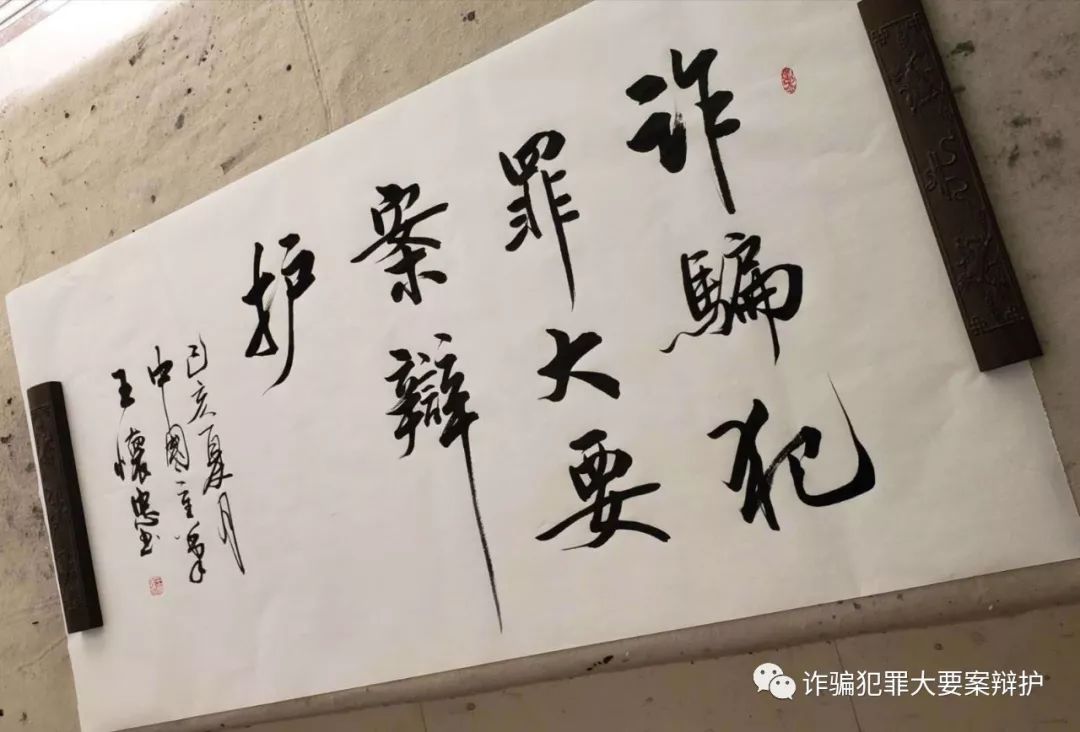 诈騙犯
罪大要
案辯
护
己亥夏月
中國
王懷忠书
诈骗犯罪大要案辩护